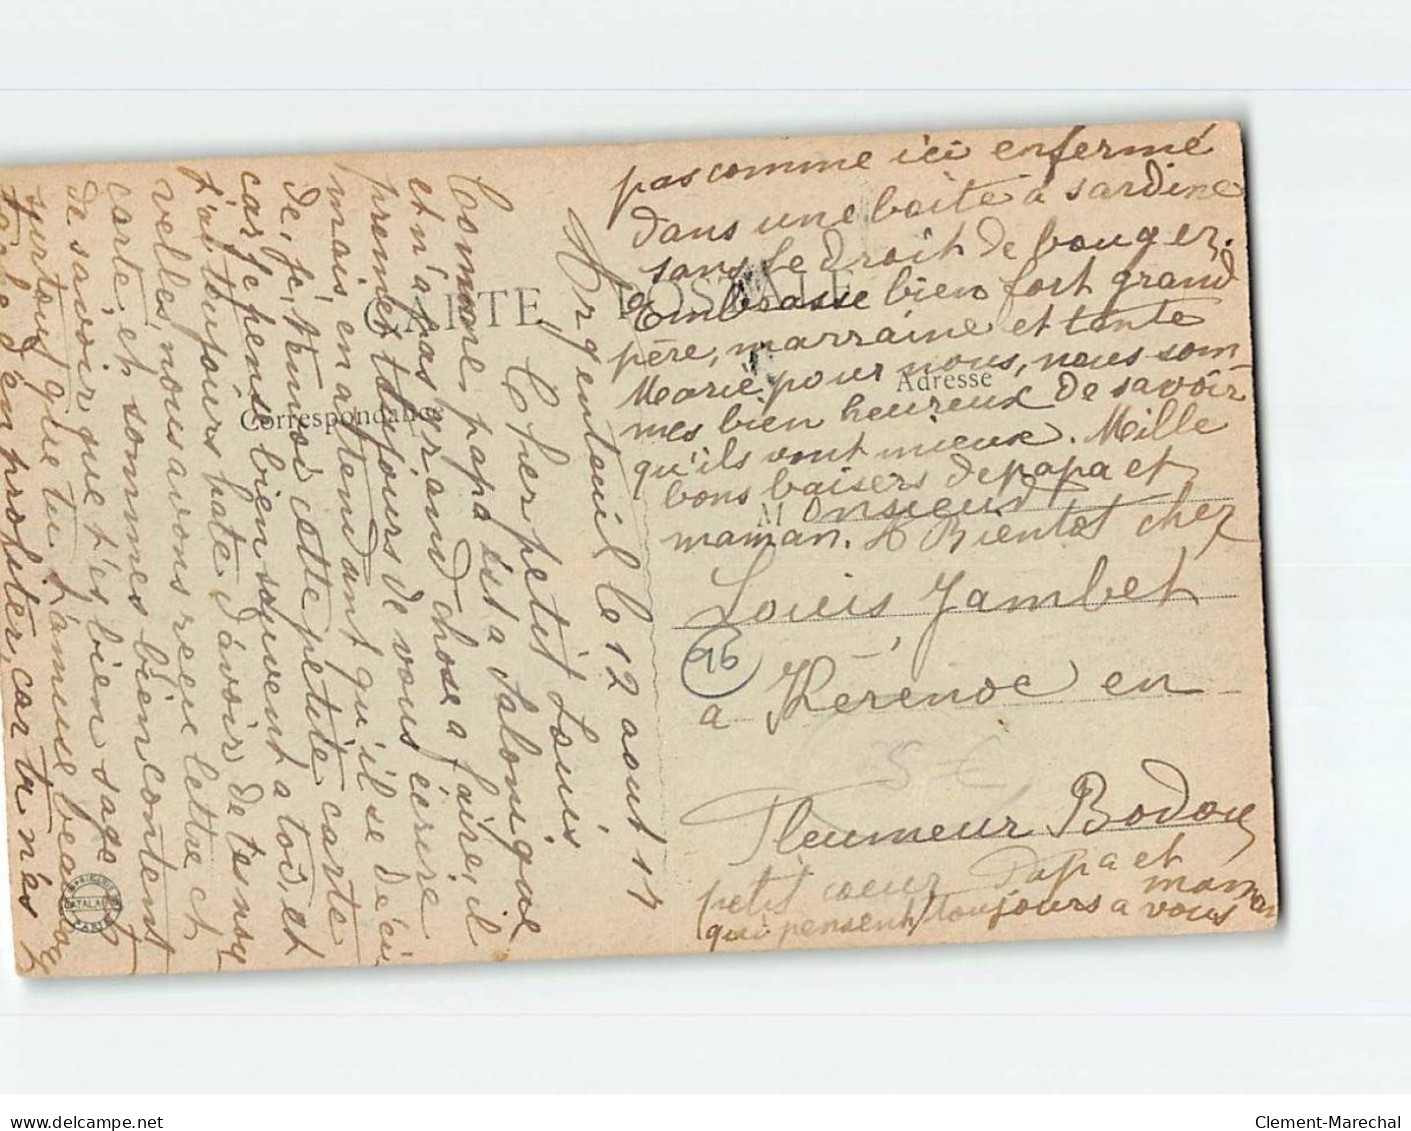 CARTE POSTALE
Correspondance
Adresse
Argenteuil le 12 aout 14
Cher petit Louis
Comme, papa est a Salonique
et n'a pas grand chose a faire, il
promet toujours de vous écrire
mais, en attendant qu'il se déci
de, je, t'envoi cette petite carte
car je pense bien souvent a toi, et
j'ai toujours hate d'avoir de tes nou
velles, nous avons reçu lettre et
carte, et sommes bien content
de savoir que t'es bien sage et
surtout que tu t'amuse beaucoup
tache d'en profiter, car tu n'es
pas comme ici enfermé
dans une boite a sardine
sans le droit de bouger.
Embrasse bien fort grand
père, marraine et tante
Marie, pour nous, nous som
mes bien heureux de savoir
qu'ils vont mieux. Mille
bons baisers de papa et
maman. A Bientot chez
Monsieur
Louis Jambet
a Kérénoc en
Pleumeur Bodou
petit coeur Papa et
maman
qui pensent toujours a vous
96
5 €
CATALA
PARIS
Clement-Marechal